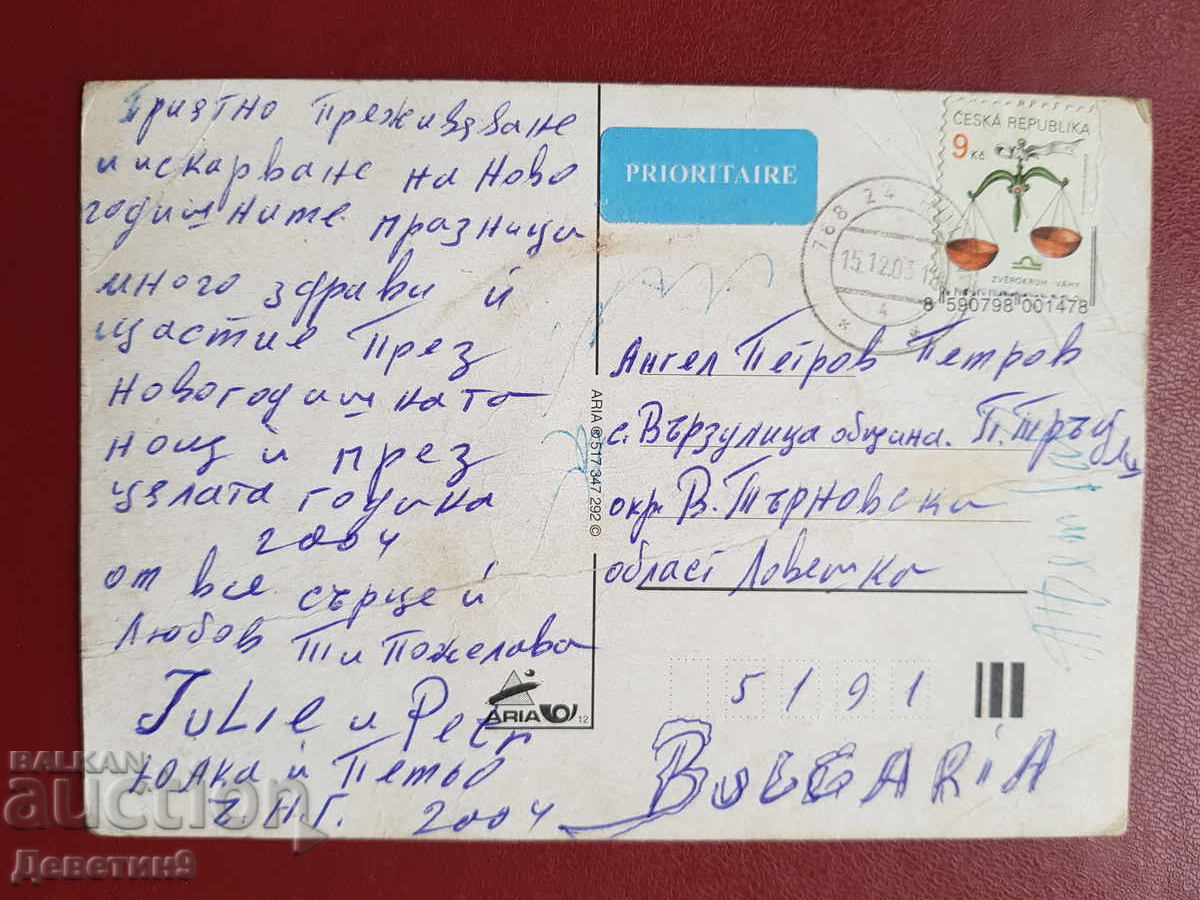 Приятно преживяване
и искарване на Ново
годишните празници
много здрави й
щастие През
новогодишката
нощ и през
цялата годика
2004
от все сърце й
Любов Ти Пожелава
Julie и Petr
Юлка й Петьо
Ч.Н.Г. 2004
PRIORITAIRE
ČESKÁ REPUBLIKA
9 Kč
ZVĚROKRUH VÁHY
8 590798 001478
168 24
15.12.03
4
Ангел Петров Петров
с. Вързулица община. П. Тръмб
окр. В. Търновски
област Ловешка
5191
BULGARIA
ARIA ® 517 347 292 ©
ARIA
12
BALKAN
auction
Деветин9